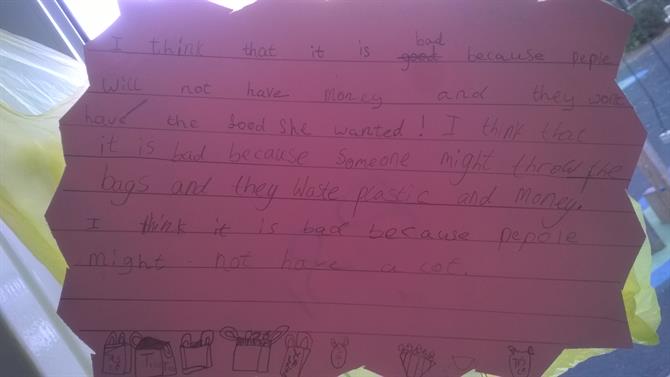 I think that it is bad because peple
will not have money and they wont
have the food she wanted! I think that
it is bad because someone might throw the
bags and they waste plastic and money.
I think it is bad because pepole
might not have a cot.